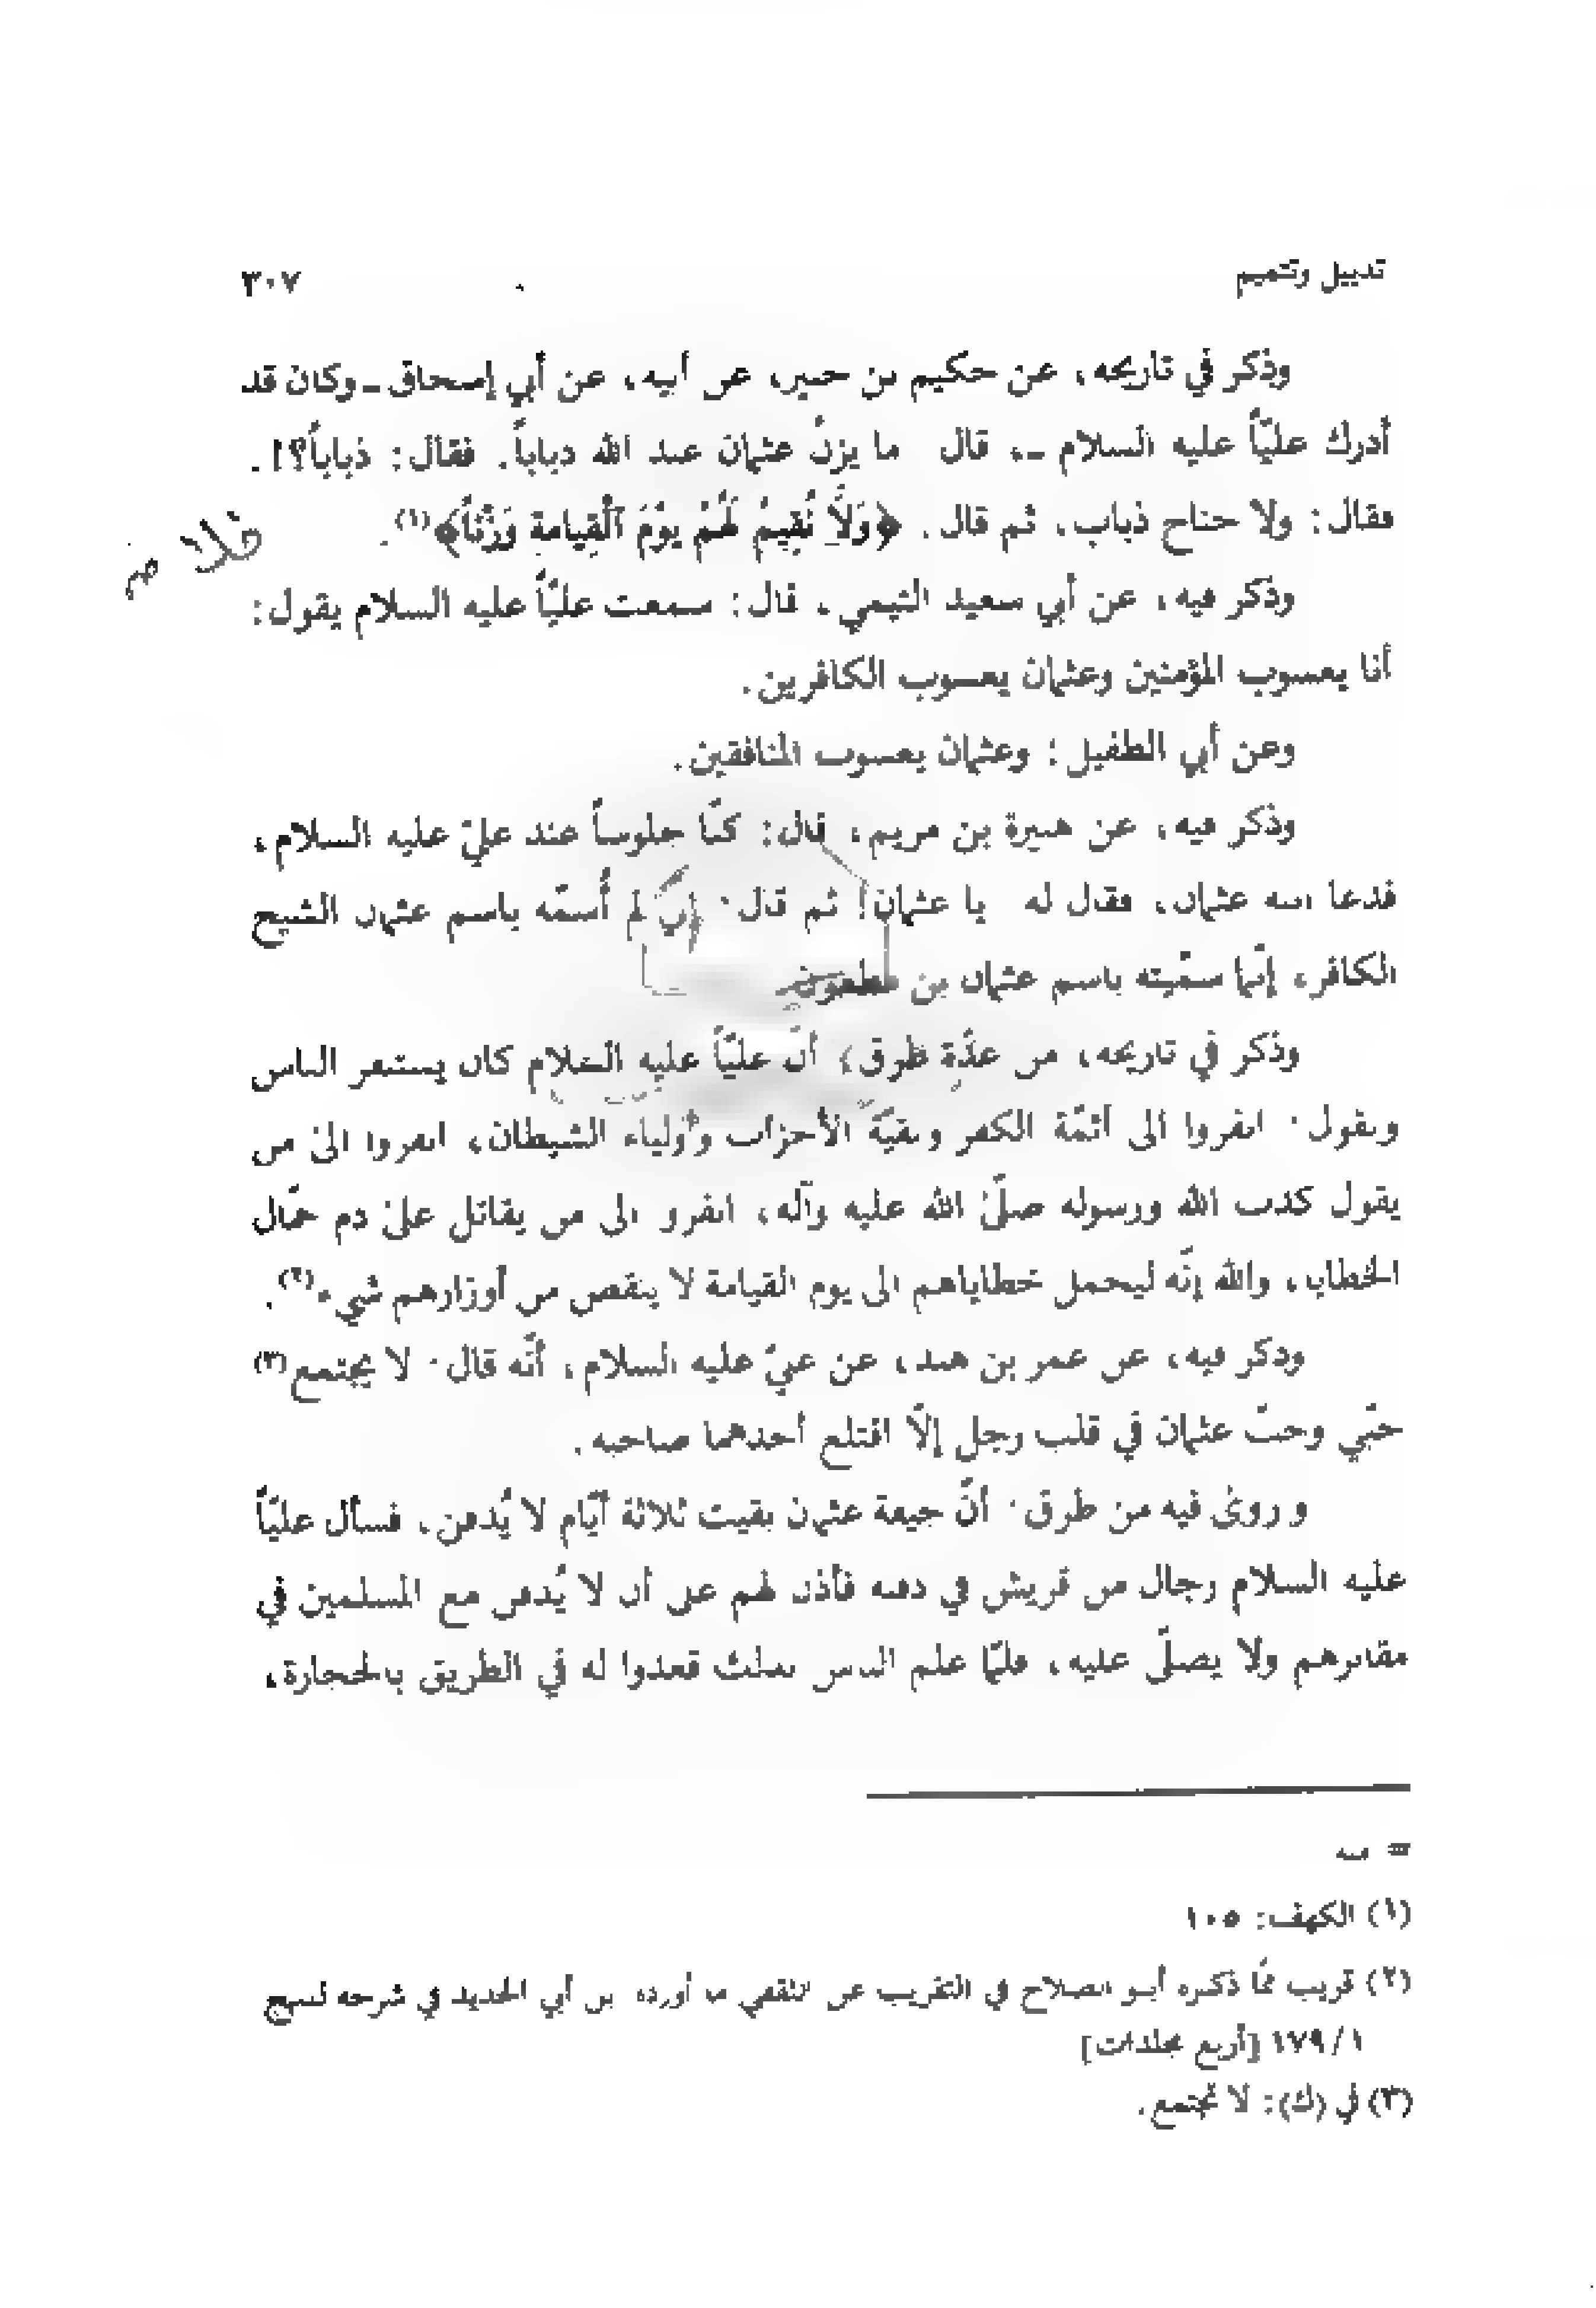 تذييل وتتميم ٣٠٧
وذكر في تاريخه، عن حكيم بن جبير، عن أبيه، عن أبي إسحاق ـ وكان قد
أدرك عليّاً عليه السلام ـ، قال ما يزن عثمان عند الله ذباباً. فقال: ذباباً؟!.
فقال: ولا جناح ذباب، ثم قال. ﴿وَلَا نُقِيمُ لَهُمْ يَوْمَ الْقِيامةِ وَزْناً﴾(١).
فلا
وذكر فيه، عن أبي سعيد التيمي، قال: سمعت عليّاً عليه السلام يقول:
أنا يعسوب المؤمنين وعثمان يعسوب الكافرين.
وعن أبي الطفيل: وعثمان يعسوب المنافقين.
وذكر فيه، عن هبيرة بن مريم، قال: كنّا جلوساً عند عليّ عليه السلام،
فدعا ابنه عثمان، فقال له يا عثمان! ثم قال: إنّي لم أُسمّه باسم عثمان الشيخ
الكافر، إنّما سمّيته باسم عثمان بن مظعون.
وذكر في تاريخه، من عدّة طرق، أنّ عليّاً عليه السلام كان يستنفر الناس
ويقول: انفروا الى أئمّة الكفر وبقيّة الأحزاب وأولياء الشيطان، انفروا الىٰ من
يقول كذب الله ورسوله صلّىٰ الله عليه وآله، انفروا الى من يقاتل علىٰ دم حمّال
الخطايا، والله إنّه ليحمل خطاياهم الى يوم القيامة لا ينقص من أوزارهم شيء(٢).
وذكر فيه، عن عمر بن هند، عن عليّ عليه السلام، أنّه قال: لا يجتمع(٣)
حبّي وحبّ عثمان في قلب رجل إلّا اقتلع أحدهما صاحبه.
وروىٰ فيه من طرق: أنّ جيفة عثمان بقيت ثلاثة أيّام لا يُدفن، فسأل عليّاً
عليه السلام رجال من قريش في دفنه فأذن لهم على أن لا يُدفن مع المسلمين في
مقابرهم ولا يصلّى عليه، فلمّا علم الناس بذلك قعدوا له في الطريق بالحجارة،
= منه
(١) الكهف: ١٠٥
(٢) قريب ممّا ذكره أبو الصلاح في التقريب عن الثقفي ما أورده ابن أبي الحديد في شرحه لنهج
١/١٧٩ [أربع مجلدات]
(٣) في (ك): لا تجتمع.